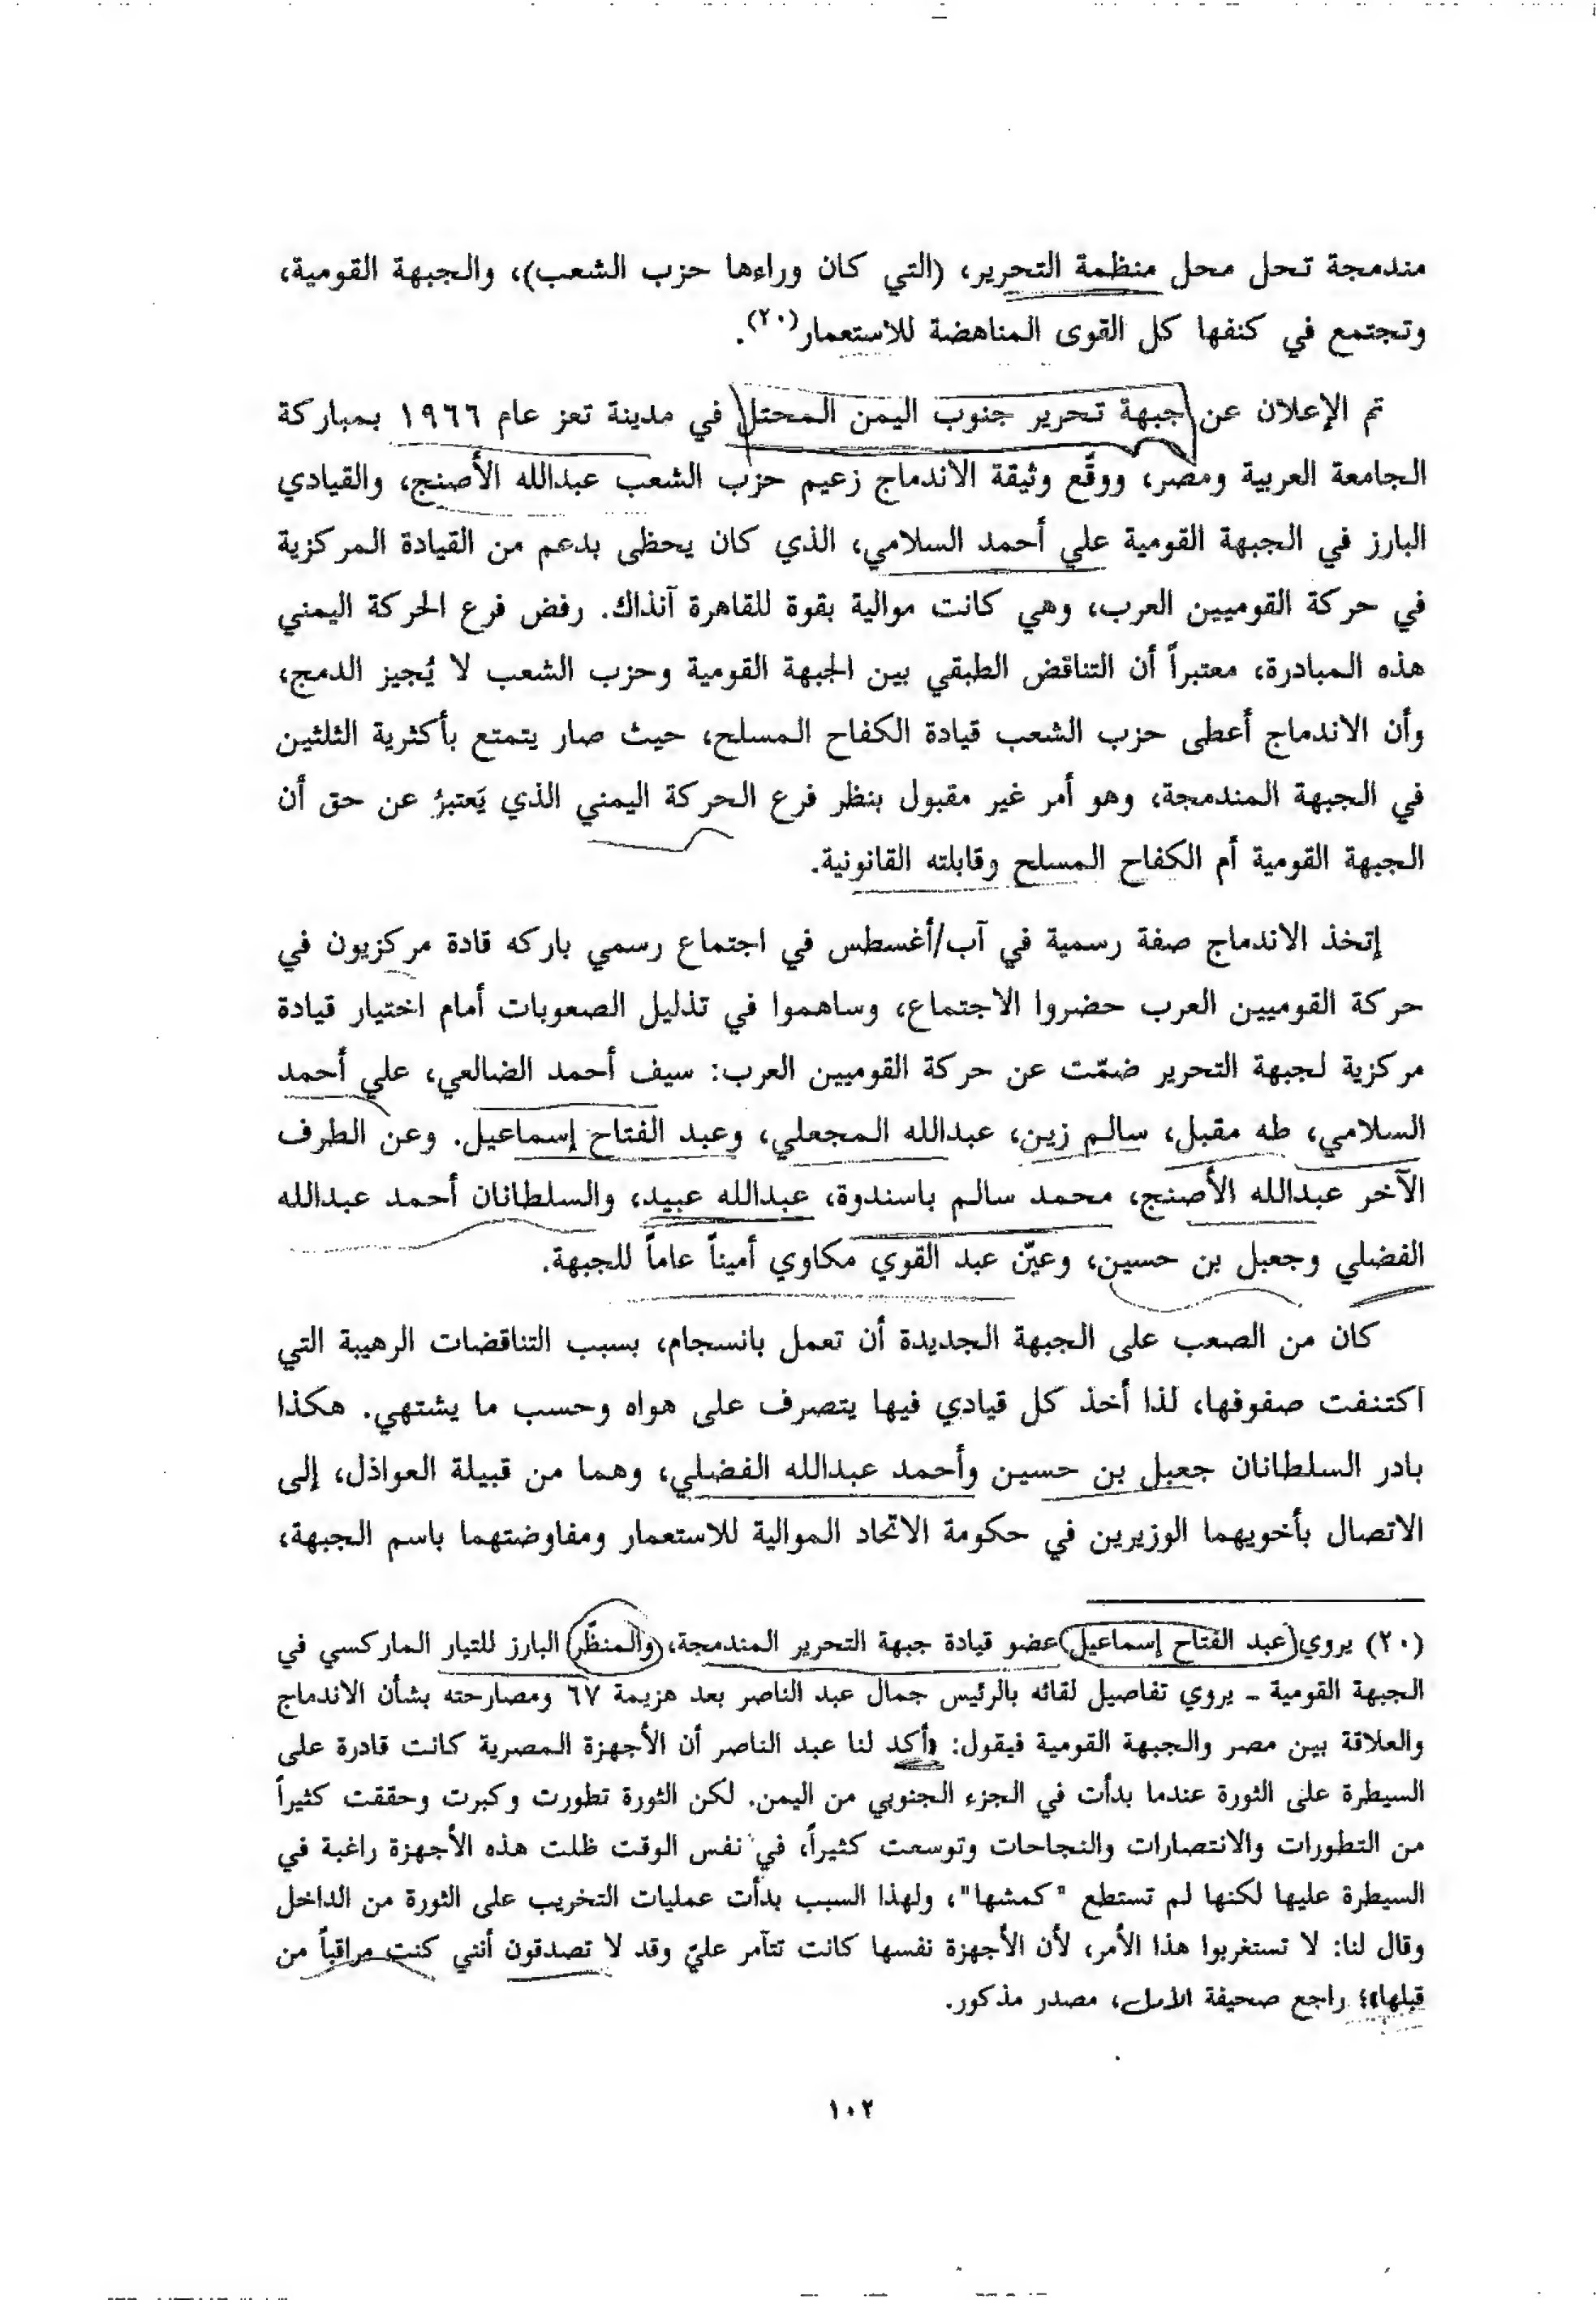 مندمجة تحل محل منظمة التحرير، (التي كان وراءها حزب الشعب)، والجبهة القومية،
وتجتمع في كنفها كل القوى المناهضة للاستعمار(٢٠).
تم الإعلان عن جبهة تحرير جنوب اليمن المحتل في مدينة تعز عام ١٩٦٦ بمباركة
الجامعة العربية ومصر، ووقّع وثيقة الاندماج زعيم حزب الشعب عبدالله الأصنج، والقيادي
البارز في الجبهة القومية علي أحمد السلامي، الذي كان يحظى بدعم من القيادة المركزية
في حركة القوميين العرب، وهي كانت موالية بقوة للقاهرة آنذاك. رفض فرع الحركة اليمني
هذه المبادرة، معتبراً أن التناقض الطبقي بين الجبهة القومية وحزب الشعب لا يُجيز الدمج،
وأن الاندماج أعطى حزب الشعب قيادة الكفاح المسلح، حيث صار يتمتع بأكثرية الثلثين
في الجبهة المندمجة، وهو أمر غير مقبول بنظر فرع الحركة اليمني الذي يَعتبرُ عن حق أن
الجبهة القومية أم الكفاح المسلح وقابلته القانونية.
إتخذ الاندماج صفة رسمية في آب/أغسطس في اجتماع رسمي باركه قادة مركزيون في
حركة القوميين العرب حضروا الاجتماع، وساهموا في تذليل الصعوبات أمام اختيار قيادة
مركزية لجبهة التحرير ضمّت عن حركة القوميين العرب: سيف أحمد الضالعي، علي أحمد
السلامي، طه مقبل، سالم زين، عبدالله المجعلي، وعبد الفتاح إسماعيل. وعن الطرف
الآخر عبدالله الأصنج، محمد سالم باسندوة، عبدالله عبيد، والسلطانان أحمد عبدالله
الفضلي وجعبل بن حسين، وعيّن عبد القوي مكاوي أميناً عاماً للجبهة.
كان من الصعب على الجبهة الجديدة أن تعمل بانسجام، بسبب التناقضات الرهيبة التي
اكتنفت صفوفها، لذا أخذ كل قيادي فيها يتصرف على هواه وحسب ما يشتهي. هكذا
بادر السلطانان جعبل بن حسين وأحمد عبدالله الفضلي، وهما من قبيلة العواذل، إلى
الاتصال بأخويهما الوزيرين في حكومة الاتحاد الموالية للاستعمار ومفاوضتهما باسم الجبهة،
(٢٠) يروي عبد الفتاح إسماعيل عضو قيادة جبهة التحرير المندمجة، والمنظّر البارز للتيار الماركسي في
الجبهة القومية ـ يروي تفاصيل لقائه بالرئيس جمال عبد الناصر بعد هزيمة ٦٧ ومصارحته بشأن الاندماج
والعلاقة بين مصر والجبهة القومية فيقول: «أكد لنا عبد الناصر أن الأجهزة المصرية كانت قادرة على
السيطرة على الثورة عندما بدأت في الجزء الجنوبي من اليمن. لكن الثورة تطورت وكبرت وحققت كثيراً
من التطورات والانتصارات والنجاحات وتوسعت كثيراً، في نفس الوقت ظلت هذه الأجهزة راغبة في
السيطرة عليها لكنها لم تستطع "كمشها"، ولهذا السبب بدأت عمليات التخريب على الثورة من الداخل
وقال لنا: لا تستغربوا هذا الأمر، لأن الأجهزة نفسها كانت تتآمر عليّ وقد لا تصدقون أنني كنت مراقباً من
قبلها»؛ راجع صحيفة الأمل، مصدر مذكور.
١٠٢